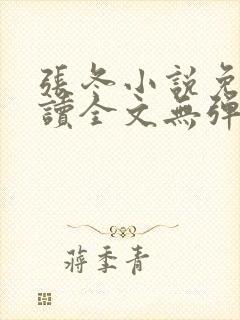 張冬小說免
讀全文無彈
蔣季青